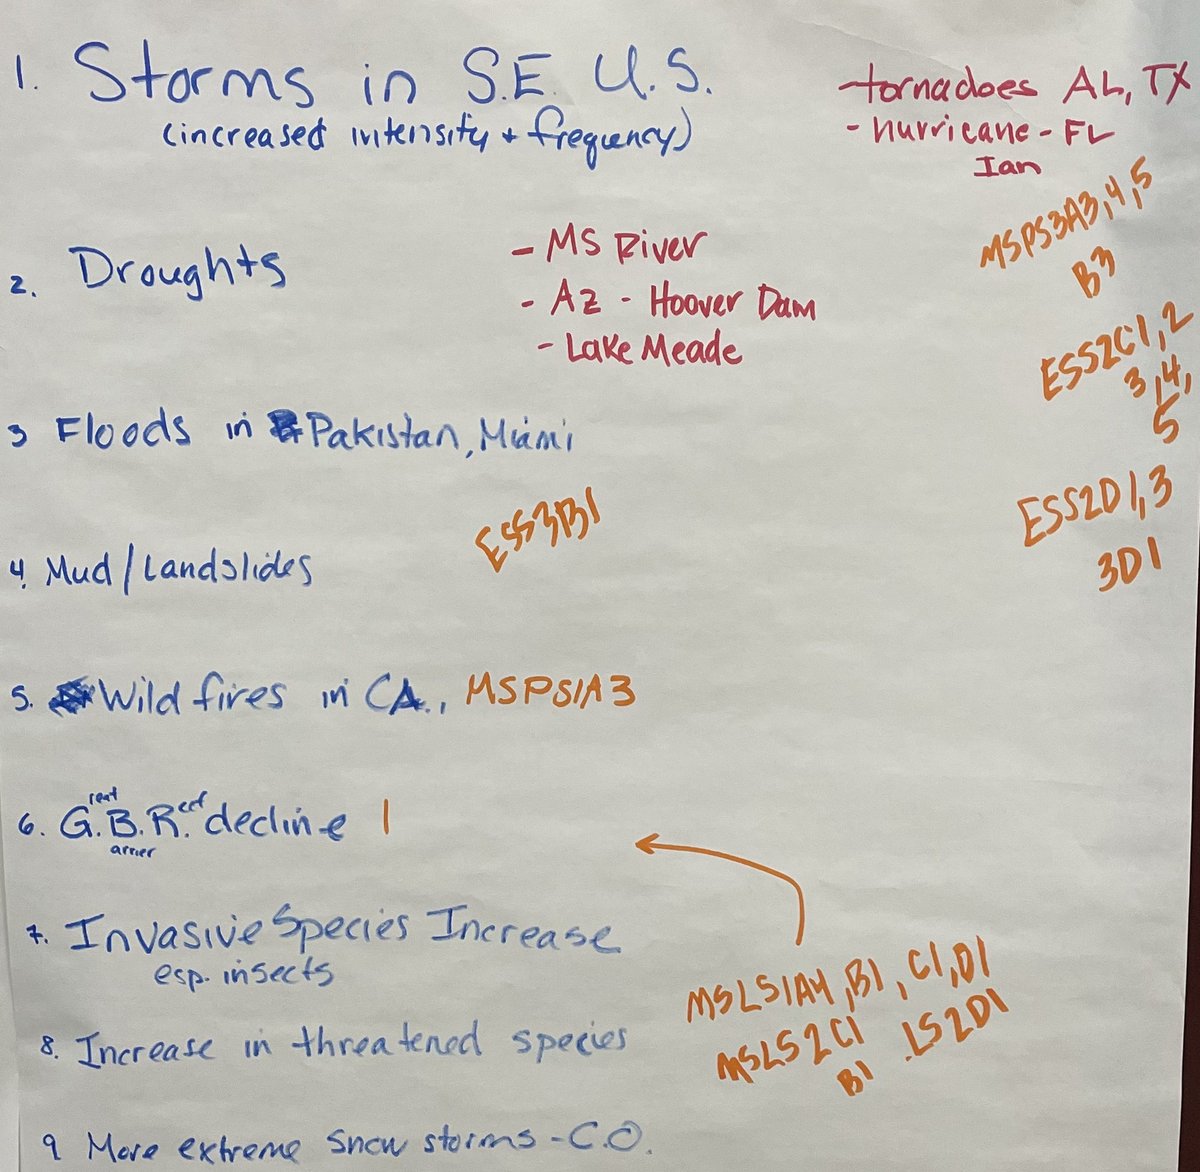 1. Storms in S.E. U.S.
(increased intensity + frequency)
- tornadoes AL, TX
- hurricane - FL
Ian
MSPS3A3,4,5
B3
2. Droughts
- MS River
- AZ - Hoover Dam
- Lake Meade
ESS2C1,2
3,4,
5
3 Floods in Pakistan, Miami
ESS3B1
ESS2D1,3
3D1
4. Mud/Landslides
5. Wild fires in CA., MSPS1A3
6. Great Barrier Reef decline |
7. Invasive Species Increase
esp. insects
MSLS1A4, B1, C1, D1
8. Increase in threatened species
MSLS2C1 LS2D1
B1
9 More extreme snow storms - C.O.